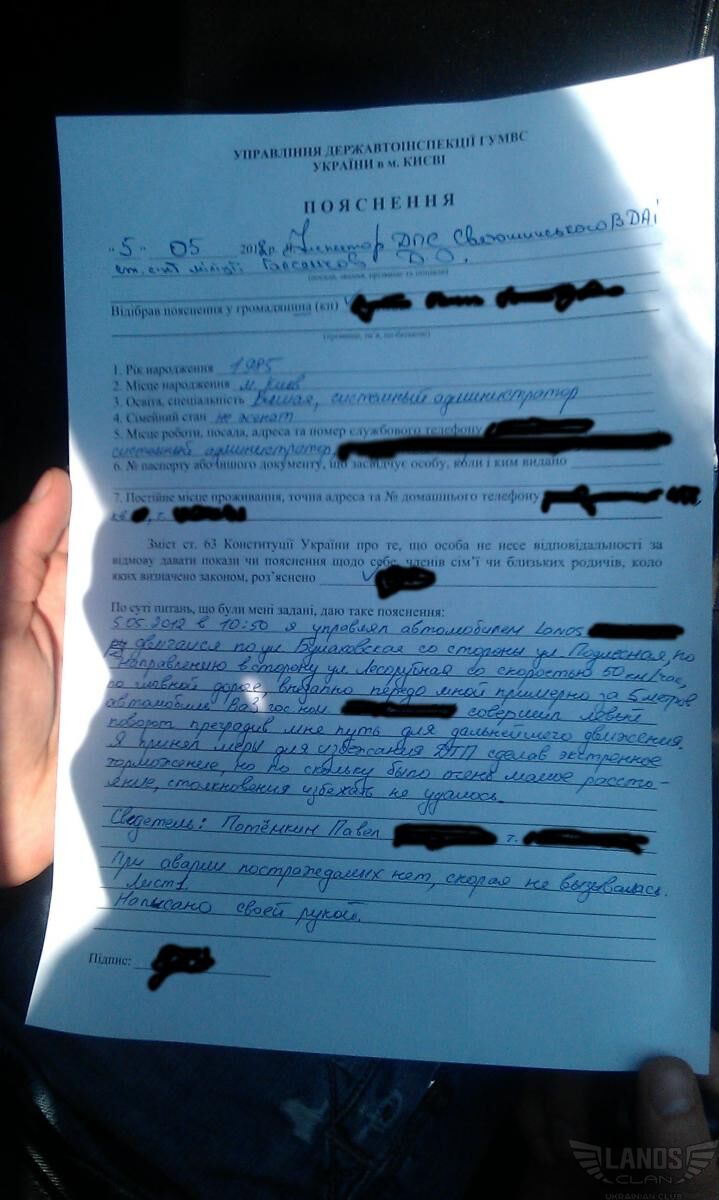 УПРАВЛІННЯ ДЕРЖАВТОІНСПЕКЦІЇ ГУМВС
УКРАЇНИ в м. КИЄВІ
ПОЯСНЕННЯ
"5" 05 2012р. Інспектор ДПС Святошинського ВДАІ
ст. с-нт міліції Д.О.
(посада, звання, прізвище та ініціали)
Відібрав пояснення у громадянина (ки)
(прізвище, ім'я, по-батькові)
1. Рік народження 1985
2. Місце народження м. Киев
3. Освіта, спеціальність Высшая, системный администратор
4. Сімейний стан не женат
5. Місце роботи, посада, адреса та номер службового телефону
системный администратор,
6. № паспорту або іншого документу, що засвідчує особу, коли і ким видано
7. Постійне місце проживання, точна адреса та № домашнього телефону
кв. , т.
Зміст ст. 63 Конституції України про те, що особа не несе відповідальності за
відмову давати покази чи пояснення щодо себе, членів сім'ї чи близьких родичів, коло
яких визначено законом, роз'яснено
По суті питань, що були мені задані, даю таке пояснення:
5.05.2012 в 10:50 я управлял автомобилем Lanos
двигался по ул Булаховская со стороны ул Подлесная, по
направлению в сторону ул Лесорубная со скоростью 50 км/час,
по главной дороге, внезапно передо мной примерно за 5 метров
автомобиль Ваз гос ном совершил левый
поворот преградив мне путь для дальнейшего движения.
Я принял меры для избежания ДТП сделав экстренное
торможение, но по скольку было очень малое рассто-
яние, столкновения избежать не удалось.
Свидетель: Потёмкин Павел т.
При аварии пострадалых нет, скорая не вызывалась.
Лист 1.
Написано своей рукой.
Підпис:
LANOS
CLAN
UKRAINIAN CLUB